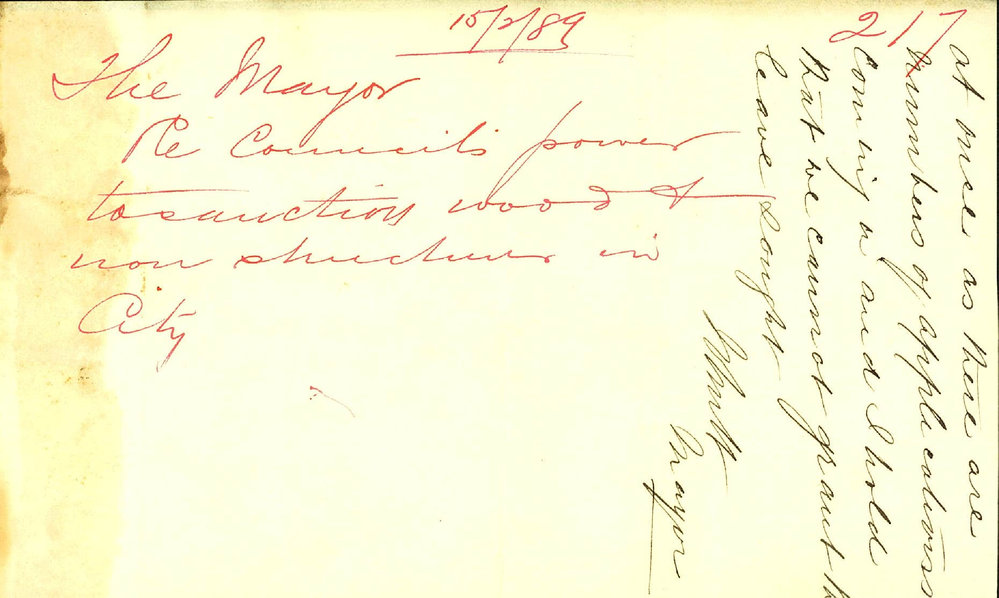 15/2/89
217
The Mayor
Re Councils power
to sanction wood &
iron structures in
City
at once as there are
numbers of applications
coming in and I hold
that we cannot grant
leave sought
Mayor